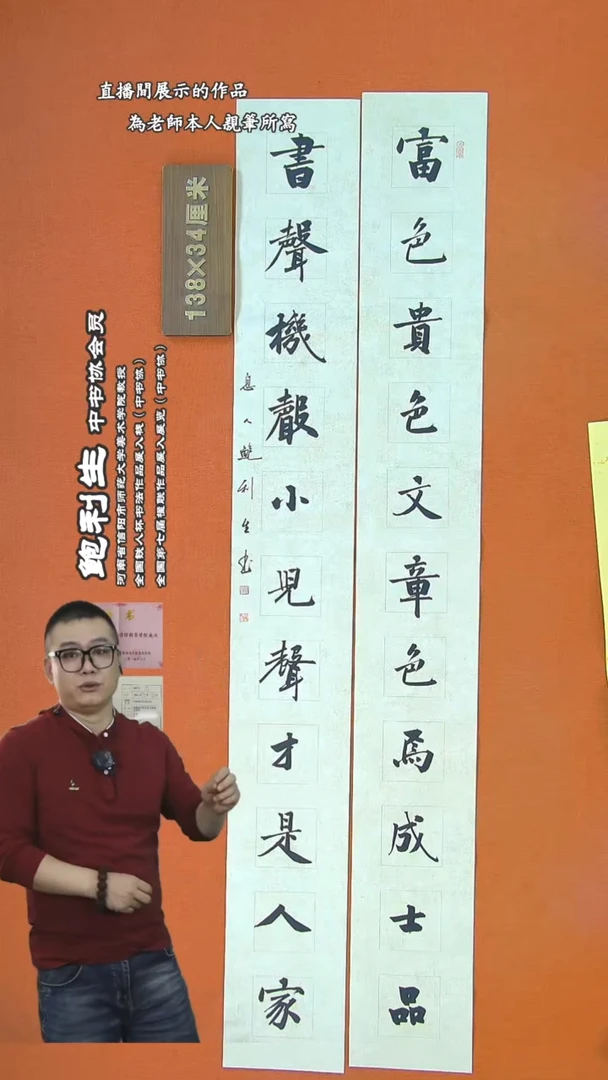 直播間展示的作品
為老師本人親筆所寫
138×34厘米
富色貴色文章色焉成士品
書聲機聲小兒聲才是人家
息人鮑利生書
鲍利生 中书协会员
河南省信阳市师范大学美术学院教授
全国铁人杯书法作品展入展（中书协）
全国第七届楹联作品展入展览（中书协）